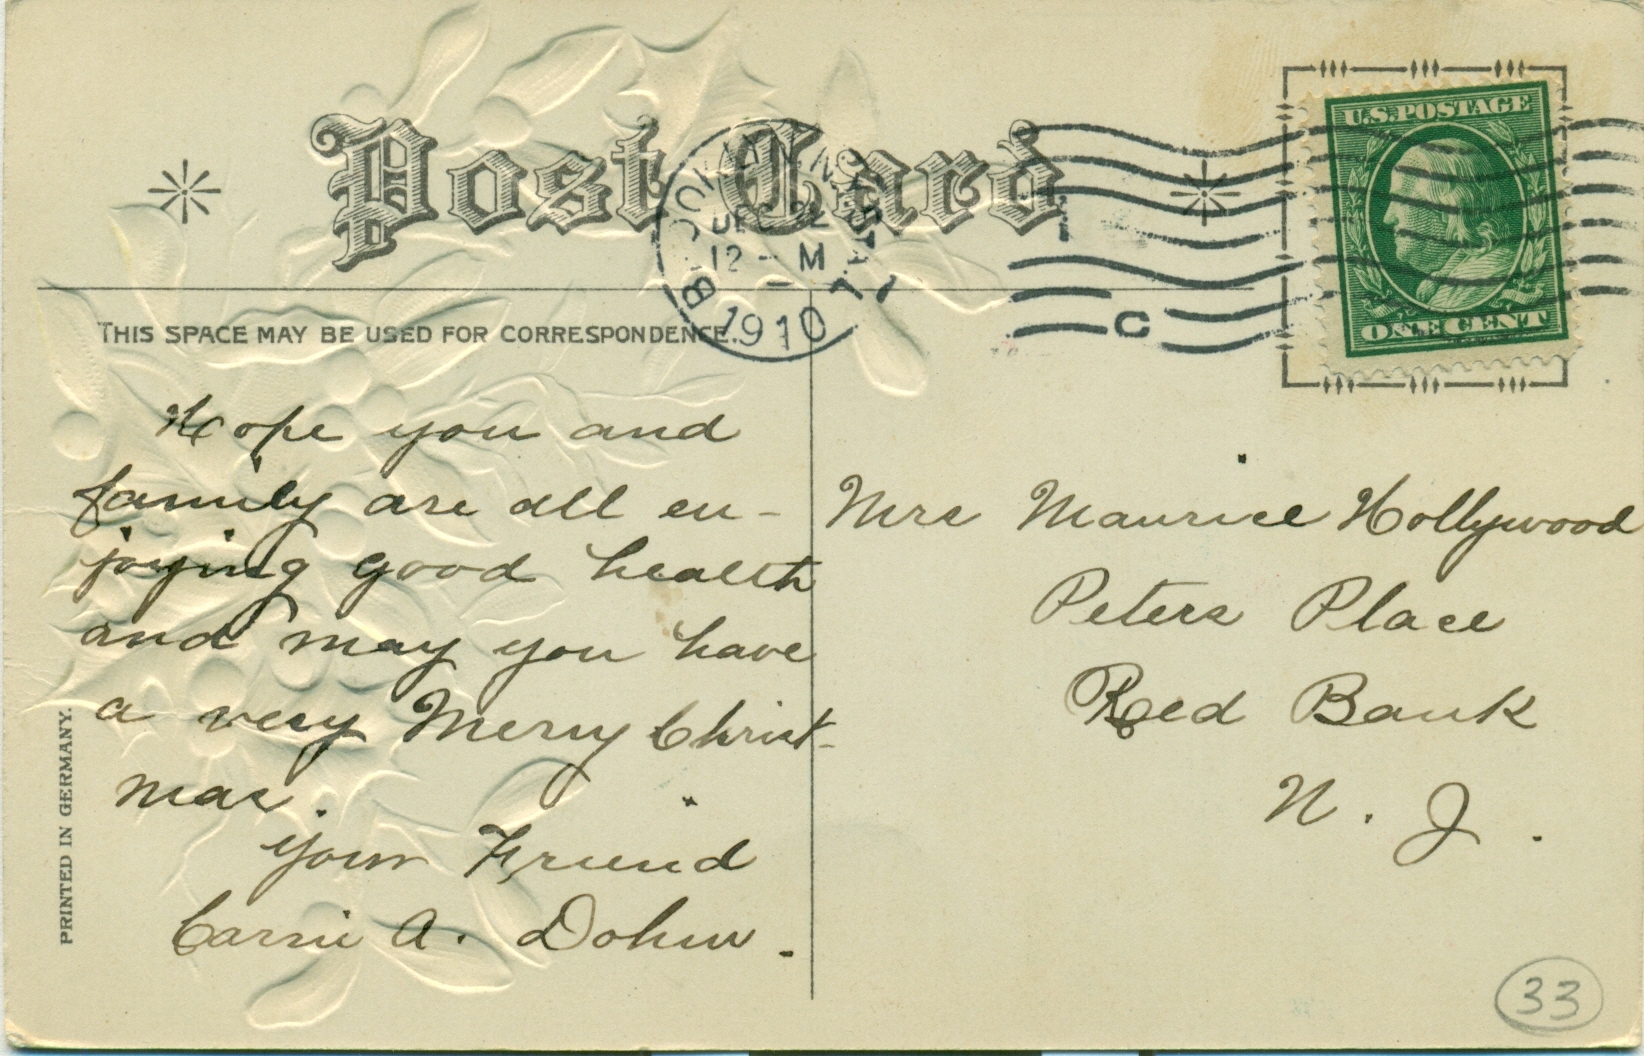 Post Card
BROOKLYN, N.Y. STA. L
DEC 22
12 - M
1910
C
U.S. POSTAGE
ONE CENT
THIS SPACE MAY BE USED FOR CORRESPONDENCE.
Hope you and
family are all en-
joying good health
and may you have
a very Merry Christ-
mas.
Your Friend
Carrie A.
Mrs Maurice Hollywood
Peters Place
Red Bank
N. J.
PRINTED IN GERMANY.
33